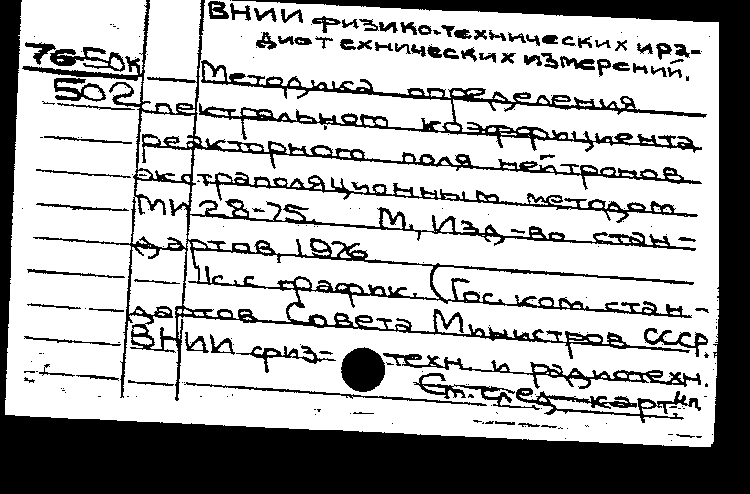 ВНИИ физико-технических и ра-
диотехнических измерений.
76-50к
502
Методика определения
спектрального коэффициента
реакторного поля нейтронов
экстраполяционным методом
МИ 28-75. М., Изд-во стан-
дартов, 1976
11с. с график. (Гос. ком. стан-
дартов Совета Министров СССР.
ВНИИ физ.- техн. и радиотехн.
См. след. карт.